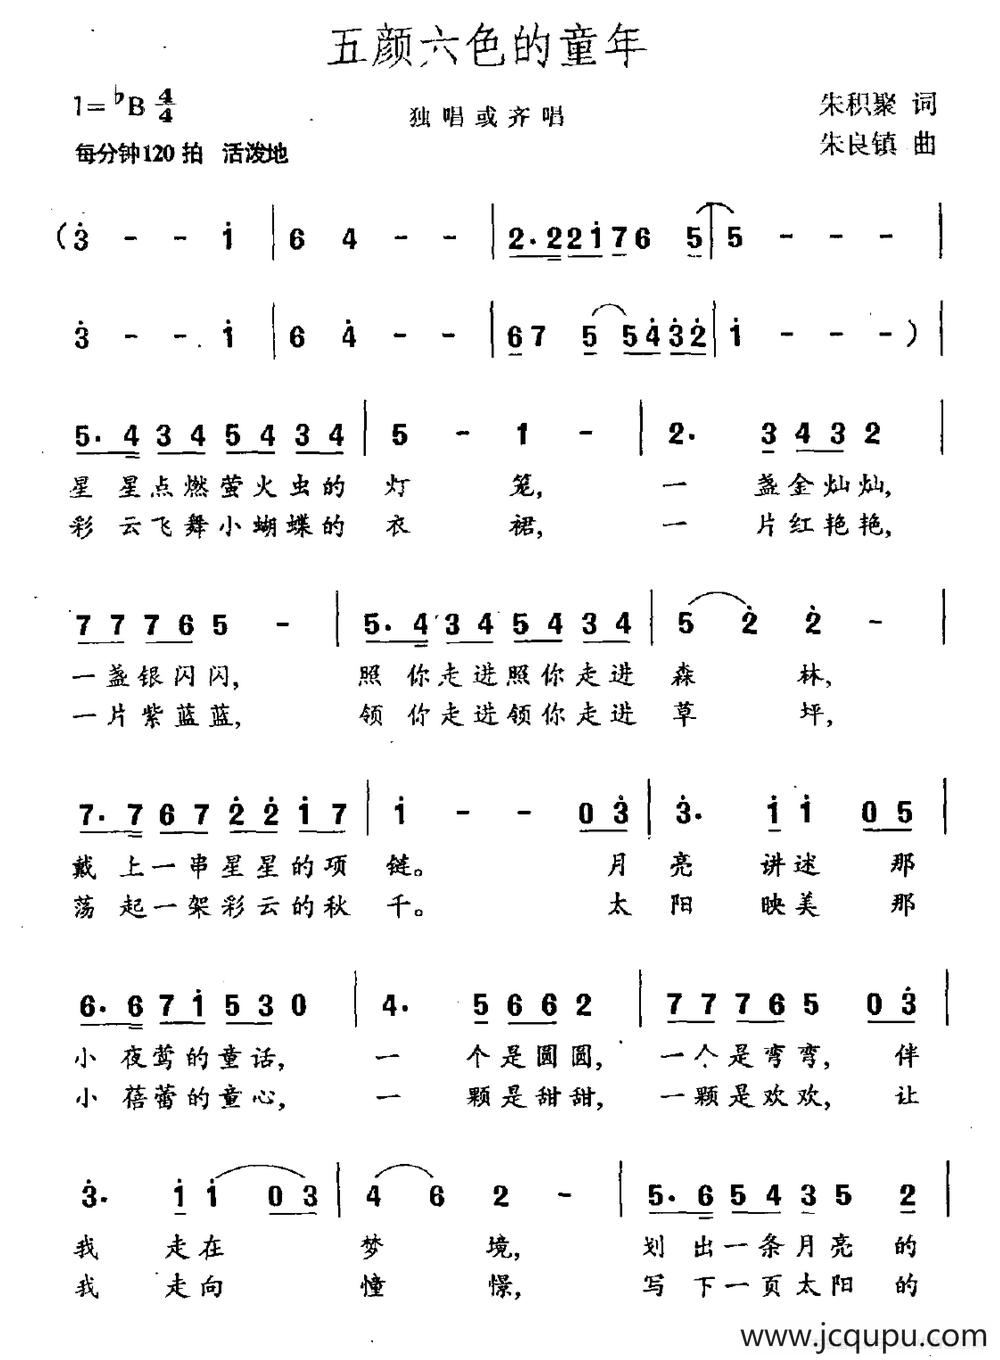 五颜六色的童年
1=♭B 4/4
独唱或齐唱
朱积聚 词
每分钟120拍 活泼地
朱良镇 曲
(3 - - 1 | 6 4 - - | 2. 2 2 1 7 6 5 | 5 - - - |
3 - - 1 | 6 4 - - | 6 7 5 5 4 3 2 | 1 - - - ) |
5. 4 3 4 5 4 3 4 | 5 - 1 - | 2. 3 4 3 2 |
星 星点燃萤火虫的 灯 笼, 一 盏金灿灿,
彩 云飞舞小蝴蝶的 衣 裙, 一 片红艳艳,
7 7 7 6 5 - | 5. 4 3 4 5 4 3 4 | 5 2 2 - |
一盏银闪闪, 照 你走进照你走进 森 林,
一片紫蓝蓝, 领 你走进领你走进 草 坪,
7. 7 6 7 2 2 1 7 | 1 - - 0 3 | 3. 1 1 0 5 |
戴 上一串星星的项 链。 月 亮 讲述 那
荡 起一架彩云的秋 千。 太 阳 映美 那
6. 6 7 1 5 3 0 | 4. 5 6 6 2 | 7 7 7 6 5 0 3 |
小 夜莺的童话, 一 个是圆圆, 一个是弯弯, 伴
小 蓓蕾的童心, 一 颗是甜甜, 一颗是欢欢, 让
3. 1 1 0 3 | 4 6 2 - | 5. 6 5 4 3 5 2 |
我 走在 梦 境, 划 出一条月亮的
我 走向 憧 憬, 写 下一页太阳的
www.jcqupu.com